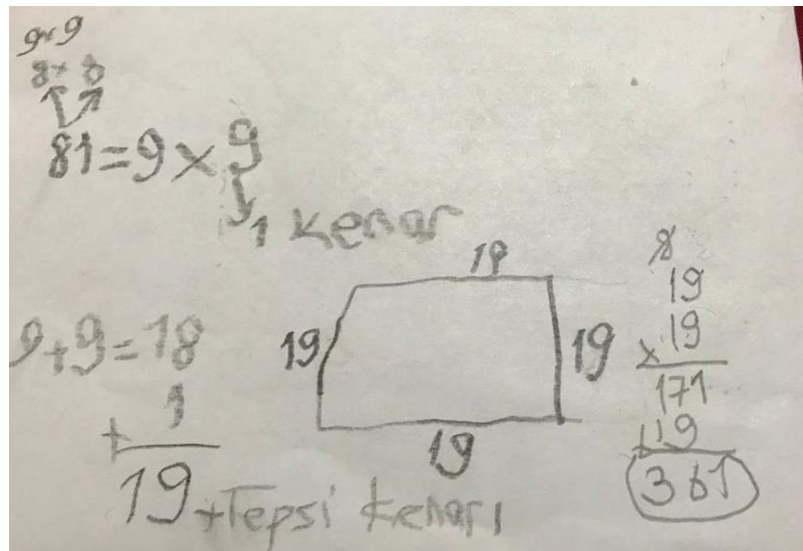 9x9
8x8
81=9x9
1 kenar
9+9=18
+ 1
19 → Tepsi kenarı
19
19
19
19
8
19
x 19
171
+19
361